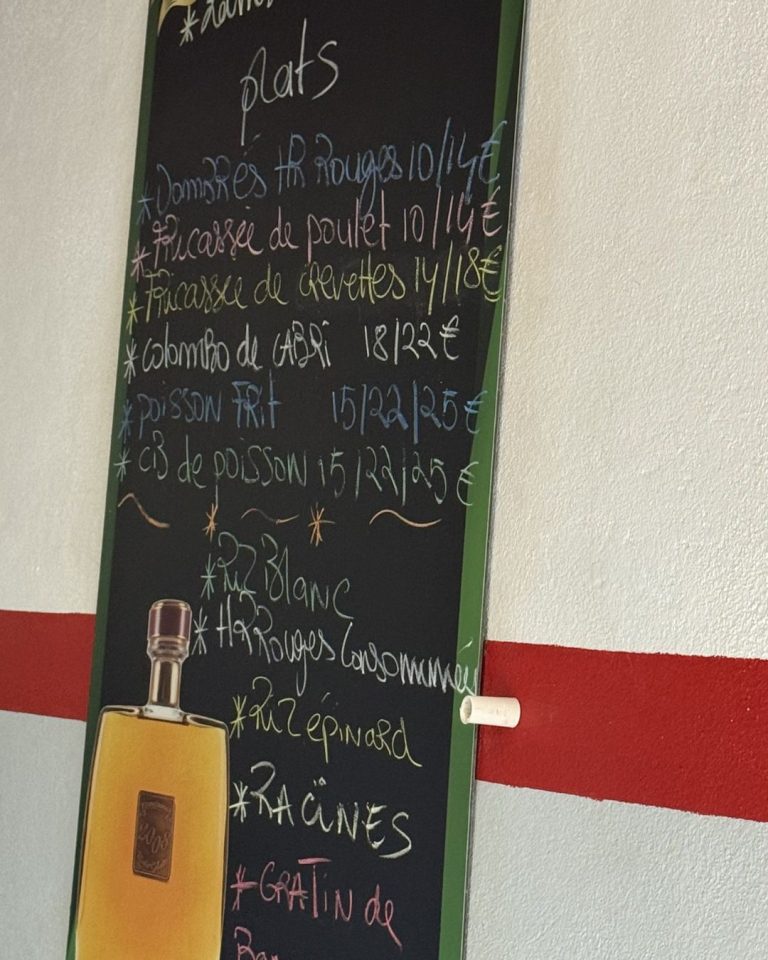 plats
*DombRés HR Rouges 10/14€
*Fricassée de poulet 10/14€
*Fricassée de crevettes 14/18€
*colombo de CABRi 18/22€
*poisson FRit 15/22/25€
*cB de poisson 15/22/25€
*Riz Blanc
*HR Rouges Consommmés
*Riz épinard
*RAcïNES
*GRATiN de